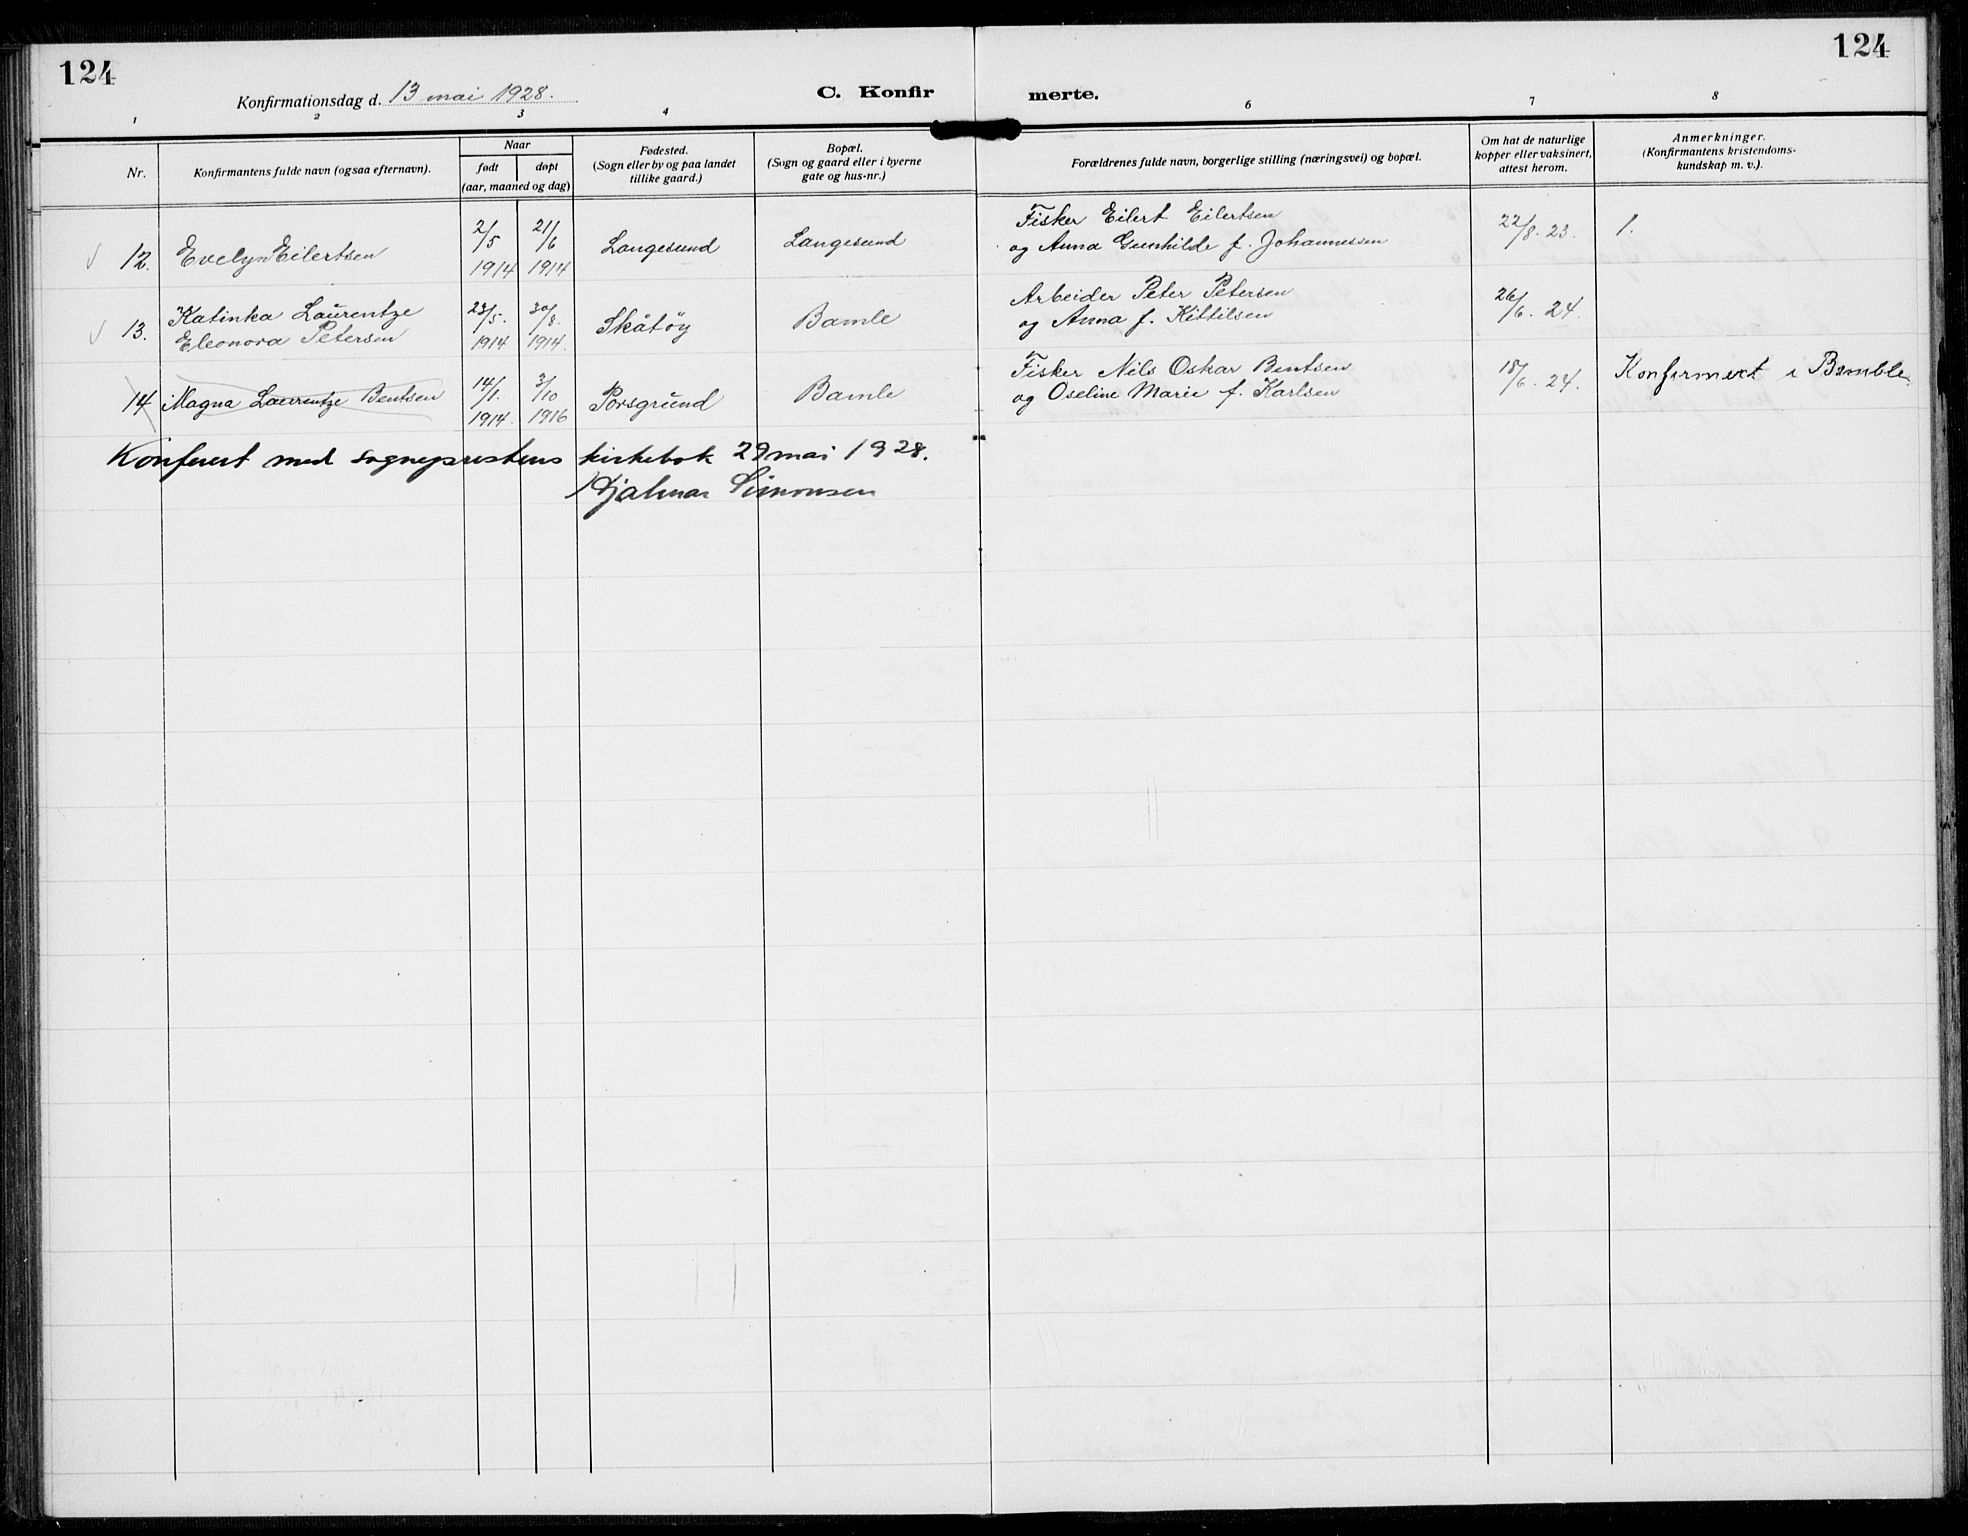 124
124
Konfirmationsdag d. 13 mai 1928.
C. Konfir merte.
1 2 3 4 6 7 8
Nr.
Konfirmantens fulde navn (ogsaa efternavn).
Naar
født døpt
(aar, maaned og dag)
Fødested.
(Sogn eller by og paa landet
tillike gaard.)
Bopæl.
(Sogn og gaard eller i byerne
gate og hus-nr.)
Forældrenes fulde navn, borgerlige stilling (næringsvei) og bopæl.
Om hat de naturlige
kopper eller vaksinert,
attest herom.
Anmerkninger.
(Konfirmantens kristendoms-
kundskap m. v.).
12. Evelyn Eilertsen
2/5 1914
21/6 1914
Langesund
Langesund
Fisker Eilert Eilertsen
og Anna Gunhilde f. Johannessen
22/8. 23.
1.
13. Katinka Laurentze
Eleonora Petersen
23/5. 1914
30/8. 1914.
Skåtøy
Bamle
Arbeider Peter Petersen
og Anna f. Kittilsen
26/6. 24.
14 Magna Laurentze Bentsen
14/1. 1914.
3/10 1916
Porsgrund
Bamle
Fisker Nils Oskar Bentsen
og Oseline Marie f. Karlsen
18/6. 24.
Konfirmert i Bamble
Konferert med sogneprestens kirkebok 29 mai 1928.
Hjalmar Simonsen